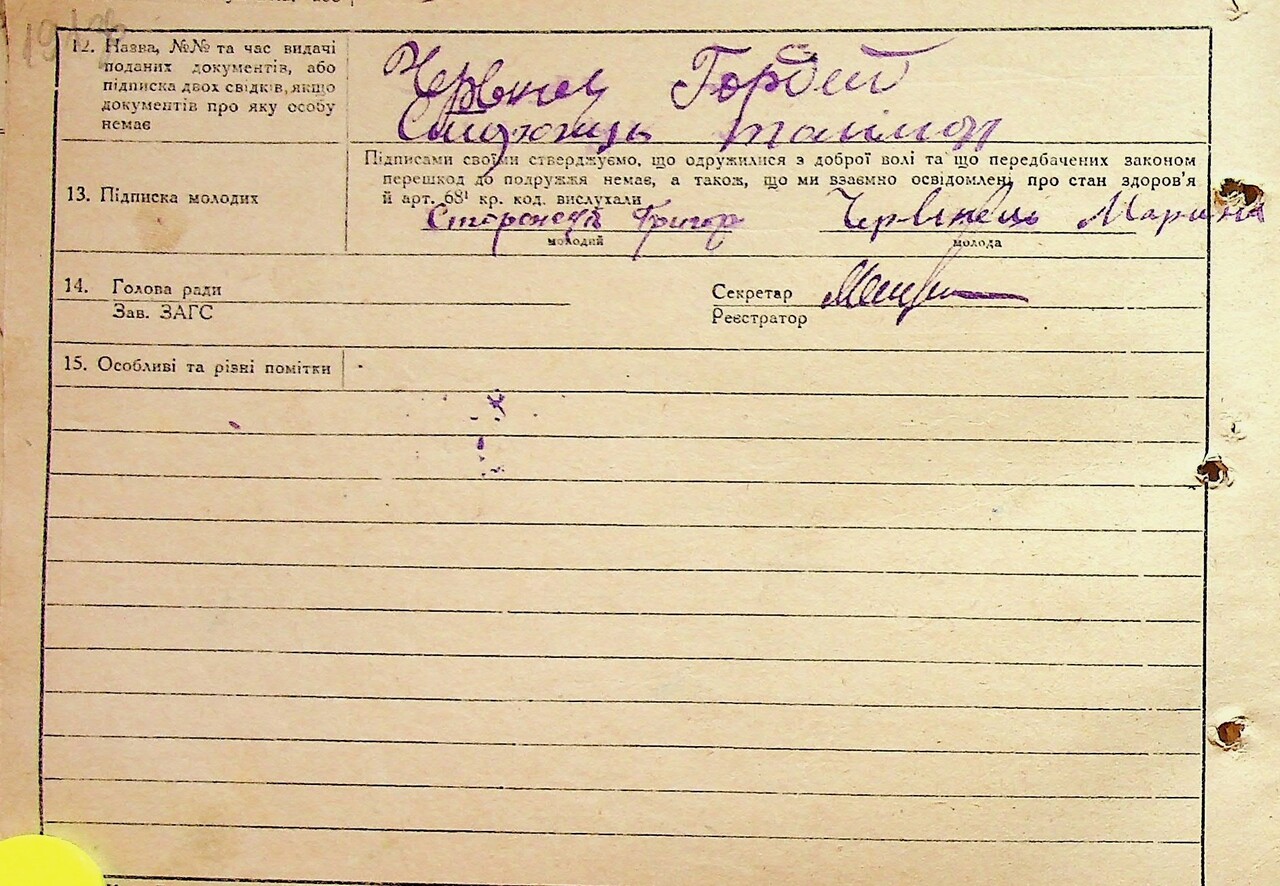 12. Назва, №№ та час видачі
поданих документів, або
підписка двох свідків, якщо
документів про яку особу
немає
Гордей
Підписами своїми стверджуємо, що одружилися з доброї волі та що передбачених законом
перешкод до подружжя немає, а також, що ми взаємно освідомлені про стан здоров'я
й арт. 68¹ кр. код. вислухали
13. Підписка молодих
Григор
Марина
молодий
молода
14. Голова ради
Зав. ЗАГС
Секретар
Реєстратор
15. Особливі та різні помітки